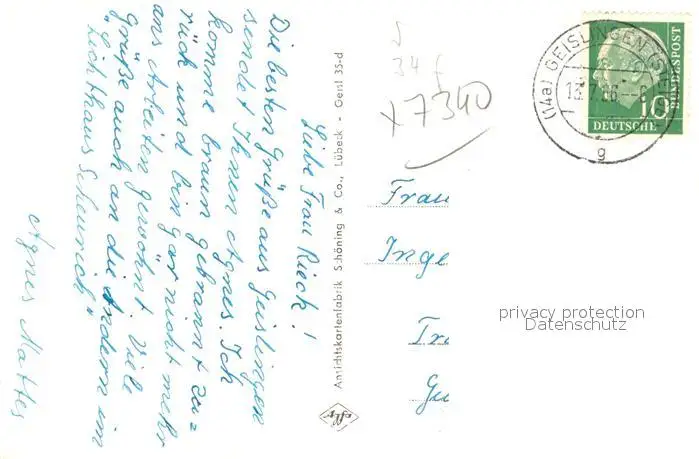 Liebe Frau Rieck!
Die besten Grüße aus Geislingen
sendet Ihnen Agnes. Ich
komme braun gebrannt zu=
rück und bin gar nicht mehr
ans Arbeiten gewöhnt. Viele
grüße auch an die Andern im
"Lichthaus Scheurich"
Agnes Mattes
Ansichtskartenfabrik Schöning & Co., Lübeck - Geisl 35-d
34
x7340
(14a) GEISLINGEN (STEIGE)
13.7.56
g
10
DEUTSCHE
BUNDESPOST
Frau
Inge
Tr
Gu
privacy protection
Datenschutz